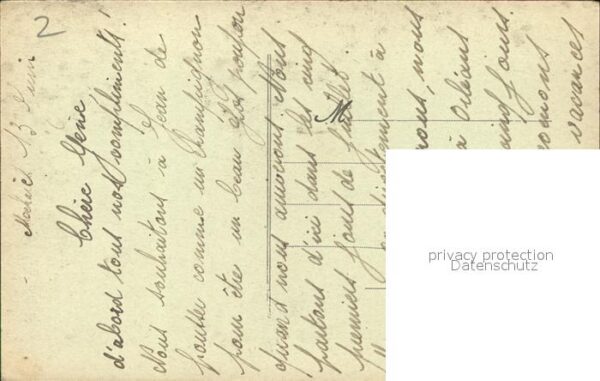 2
13 Juin
Chère Gène
d'abord tous nos compliments!
Nous souhaitons à Jean de
pousser comme un champignon
pour être un beau gros poupon
quand nous arriverons. Nous
partons d'ici dans les cinq
premiers jours de Juillet.
M
directement à
nous, nous
à Orléans
jours.
vacances
privacy protection
Datenschutz